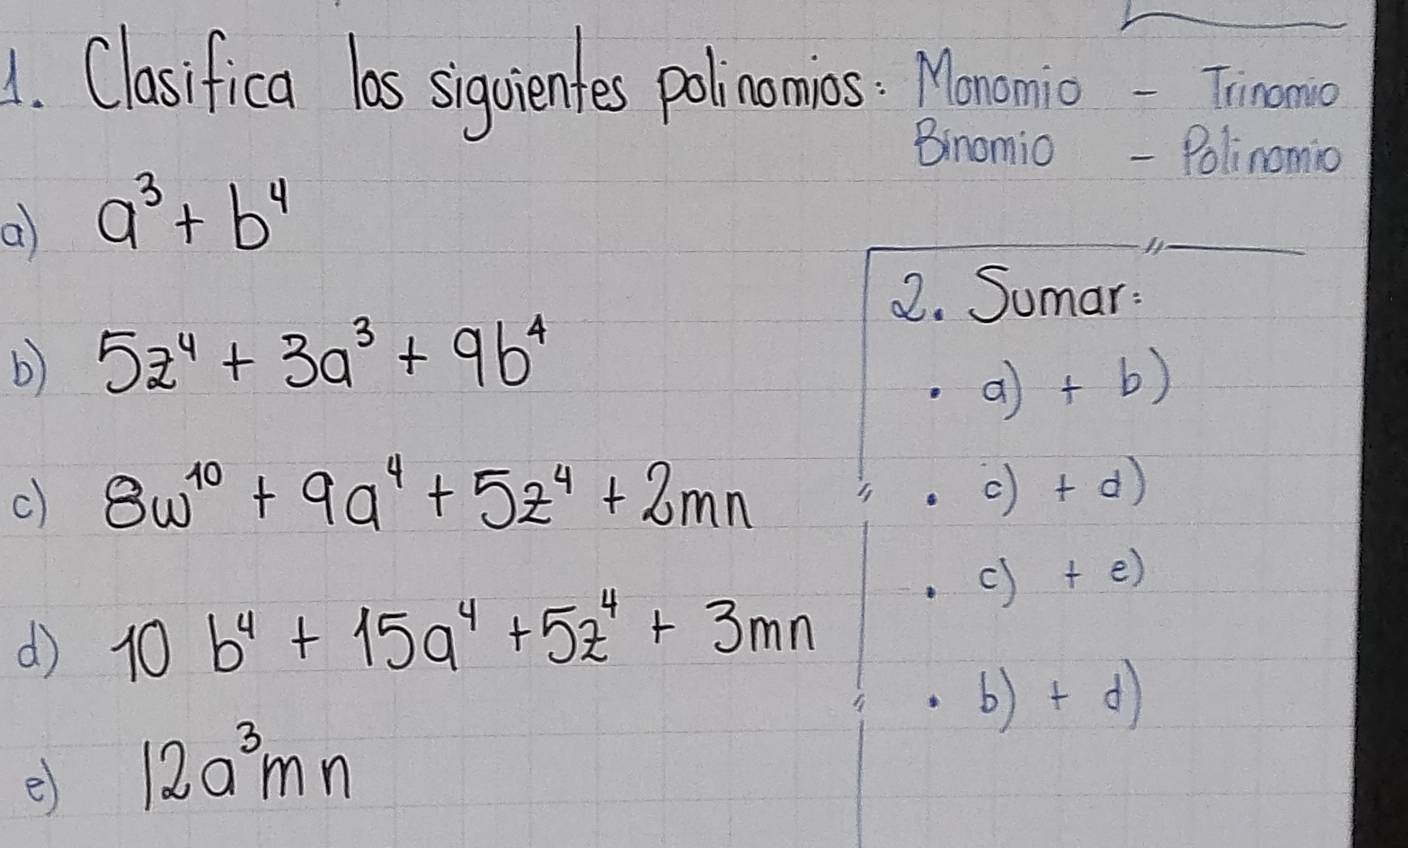 1. Clasifica los siguientes polinomios: Monomio - Trinomio
Binomio - Polinomio
a) a³ + b⁴
b) 5z⁴ + 3a³ + 9b⁴
c) 8w¹⁰ + 9a⁴ + 5z⁴ + 2mn
d) 10 b⁴ + 15a⁴ + 5z⁴ + 3mn
e) 12a³mn
2. Sumar:
• a) + b)
• c) + d)
• c) + e)
• b) + d)